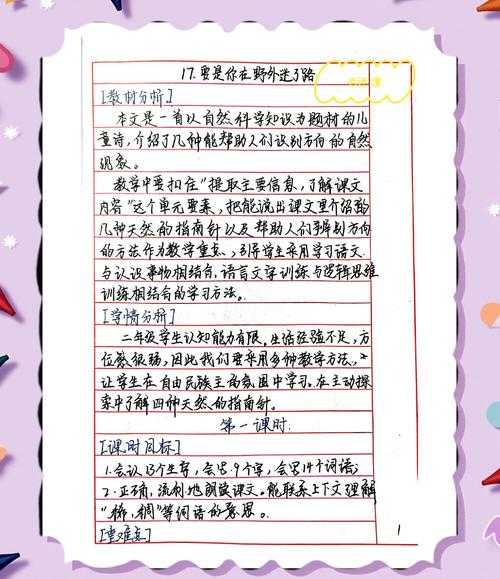 17.要是你在野外迷了路
[教材分析]
本文是一首以自然科学知识为题材的儿
童诗,介绍了几种能帮助人们识别方向的自然
现象。
教学中要扣住“提取主要信息,了解课文
内容”这个单元要素,把能说出课文里介绍的
几种天然的指南针以及帮助人们辨别方向
的方法作为教学重点,引导学生采用学习语文
与认识事物相结合、语言文字训练与逻辑思维
训练相结合的学习方法。
[学情分析]
二年级学生认知能力有限。生活经验不足,方
位感很弱,因此我们要采用多种教学方法,
让学生在自由民族主氛围中学习。在主动探
索中了解四种天然的指南针。
第一课时
[课时目标]
1.会认13个生字,会写9个字,会写14个词语;
2.正确,流利地朗读课文。能联系上下文理解
“稀,稠”等词语的意思。
[重难点]
1